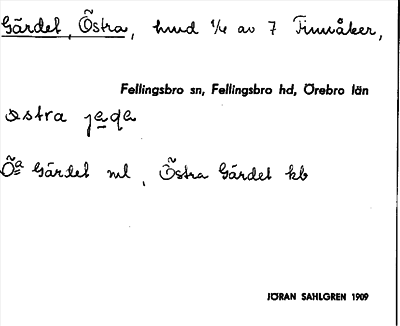 Gärdet, Östra, hmd 1/4 av 7 Finnåker,
Fellingsbro sn, Fellingsbro hd, Örebro län
östra
Öa Gärdet ml, Östra Gärdet kb
JÖRAN SAHLGREN 1909